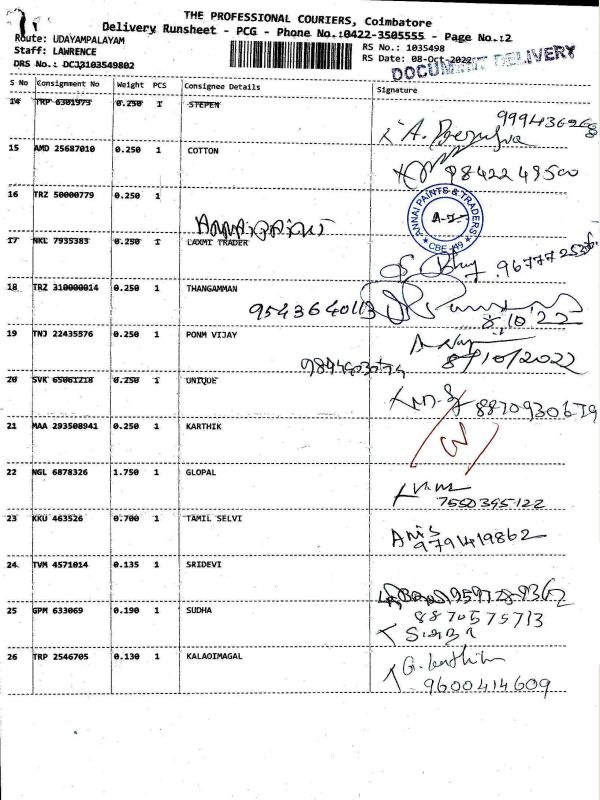 THE PROFESSIONAL COURIERS, Coimbatore
Delivery Runsheet - PCG - Phone No.:0422-3505555 - Page No.:2
Route: UDAYAMPALAYAM
RS No.: 1035498
Staff: LAWRENCE
RS Date: 08-Oct-2022
DRS No.: DCJ3103549802
DOCUMENT DELIVERY
S No Consignment No Weight PCS Consignee Details Signature
14 TRP 6301973 0.250 1 STEPEN
9994436268
15 AMD 25687010 0.250 1 COTTON
9842249500
16 TRZ 50000779 0.250 1
ANNAI PAINTS & TRADERS
CBE - 49
17 NKL 7935383 0.250 1 LAXMI TRADER
18 TRZ 310000014 0.250 1 THANGAMMAN
9543640113
8.10.22
19 TNJ 22435576 0.250 1 PONM VIJAY
8/10/2022
20 SVK 65061218 0.250 1 UNIQUE
8870930679
21 MAA 293508941 0.250 1 KARTHIK
22 NGL 6878326 1.750 1 GLOPAL
7550395122
23 KKU 463526 0.700 1 TAMIL SELVI
Anis
9791419862
24 TVM 4571014 0.135 1 SRIDEVI
25 GPM 633069 0.190 1 SUDHA
8870575713
26 TRP 2546705 0.130 1 KALAOIMAGAL
G. Karthik
9600414609